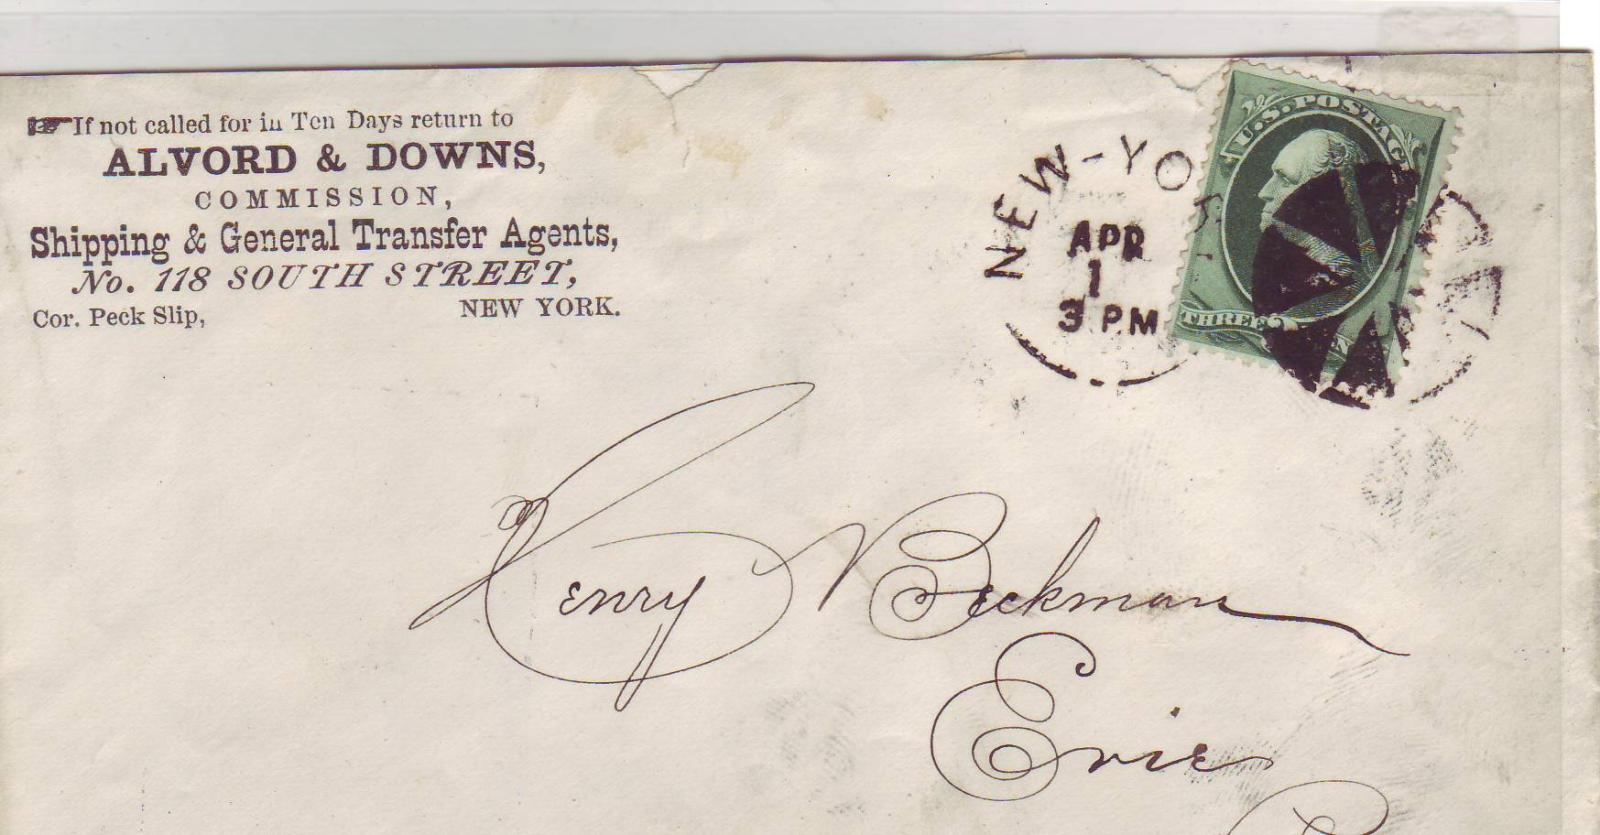 If not called for in Ten Days return to
ALVORD & DOWNS,
COMMISSION,
Shipping & General Transfer Agents,
No. 118 SOUTH STREET,
Cor. Peck Slip, NEW YORK.
NEW-YO
APR
1
3 PM
U.S. POSTAGE
THREE
Henry Beckman
Erie